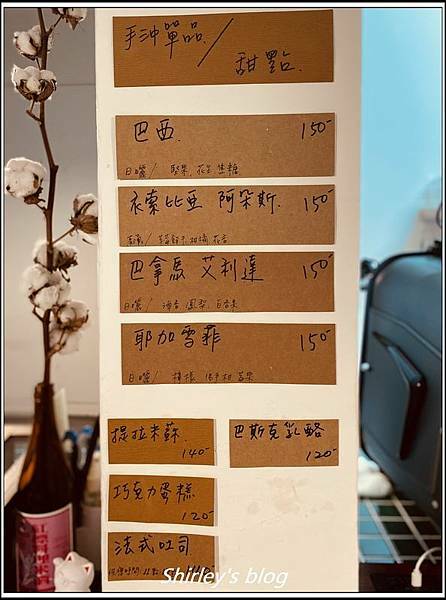 手沖單品/
甜點.
巴西. 150-
日曬/ 堅果, 花生, 焦糖
衣索比亞 阿朵斯. 150-
柑橘, 花香
巴拿馬 艾利達 150-
日曬/ 酒香, 鳳梨, 百香果
耶加雪菲 150-
日曬/ 檸檬
提拉米蘇. 140-
巴斯克乳酪 120-
巧克力蛋糕 120-
法式吐司
Shirley's blog